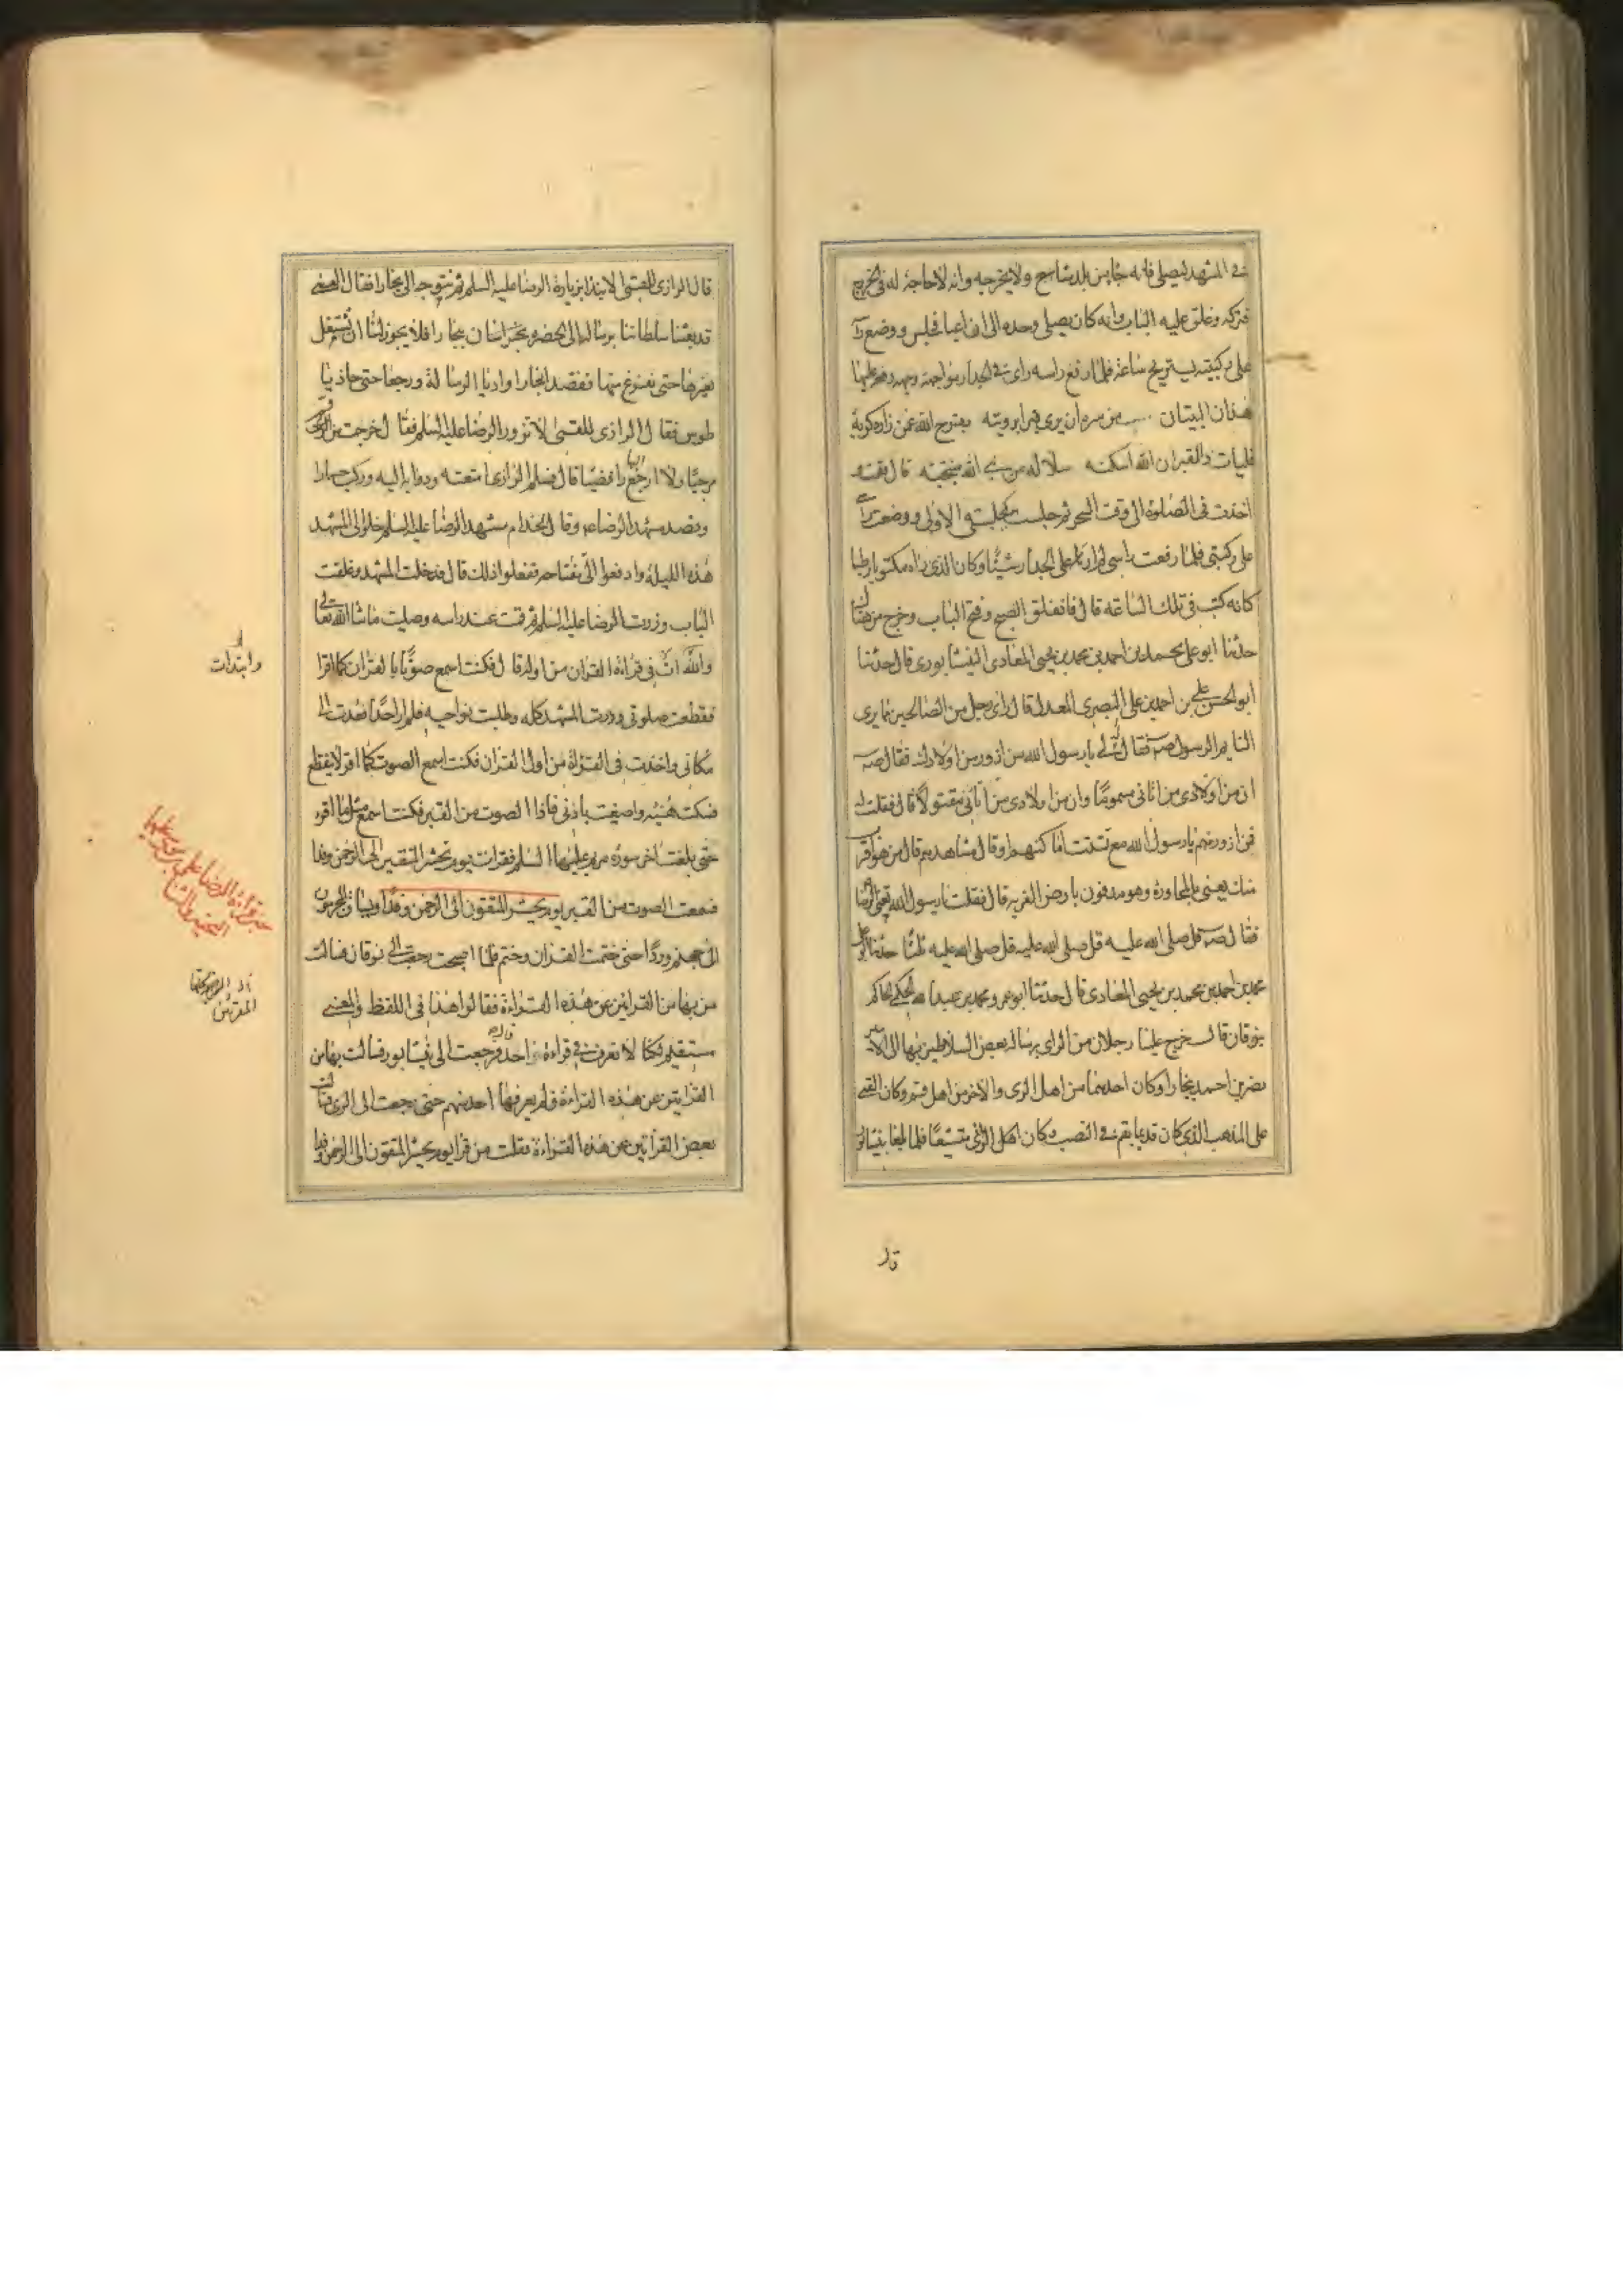 في المشهد ليصلي فانه جا من بلد شاسع ولا يخرجه وانه لا حاجة له في الخروج
فتركه وغلق عليه الباب وانه كان يصلي وحده الى ان اعيا فجلس ووضع راسه
على ركبتيه ليستريح ساعة فلما رفع راسه راى في الجدار مواجهة وجهه رقعة عليها
هذان البيتان من سره ان يرى قبرا برويته يفرج الله عمن زاره كربه
فليات ذا القبر ان الله اسكنه سلالة من نبي الله منتجبه قال فقمت و
اخذت في الصلوة الى وقت السحر ثم جلست كجلستي الاولى ووضعت راسي
على ركبتي فلما رفعت راسي لم ار ما على الجدار شيئا وكان الذي راه مكتوبا رطبا
كانه كتب في تلك الساعة قال فانفلق الصبح وفتح الباب وخرج من هناك
حدثنا ابو علي محمد بن احمد بن محمد بن يحيى المعاذي النيشابوري قال حدثنا
ابو الحسن علي بن احمد بن علي البصري المعدل قال راى رجل من الصالحين فيما يرى
النايم الرسول صه فقال له يا رسول الله من ازور من اولادك فقال صه
ان من اولادي من اتاني مسموما وان من اولادي من اتاني مقتولا قال فقلت له
فمن ازور منهم يا رسول الله مع تشتت اماكنهم او قال مشاهدهم قال من هو اقرب
منك يعني بالمجاورة وهو مدفون بارض الغربة قال فقلت يا رسول الله تعني الرضا
فقال صه قل صلى الله عليه قل صلى الله عليه قل صلى الله عليه ثلثا حدثنا ابو علي
محمد بن احمد بن محمد بن يحيى المعاذي قال حدثنا ابو عمرو محمد بن عبد الله الحكمي الحاكم
بنوقان قال خرج علينا رجلان من الرى برسالة بعض السلاطين بها الى الامير
نصر بن احمد ببخارا وكان احدهما من اهل الرى والاخر من اهل قم وكان القمي
على المذهب الذي كان قديما بقم في النصب وكان اهل الرى متشيعا فلما بلغا بنيشابور
قال
قال الرازي للقمي الا نبدا بزيارة الرضا عليه السلم ثم نتوجه الى بخارا فقال القمي
قد بعثنا سلطاننا برسالة الى الحضرة بخراسان ببخارا فلا يجوز لنا ان نشتغل
بغيرها حتى نفرغ منها فقصدا بخارا واديا الرسالة ورجعا حتى حاذيا
طوس فقال الرازي للقمي الا نزور الرضا عليه السلم فقال خرجت من الري
مرجيا ولا ارجع اليها رافضيا قال فسلم الرازي امتعته ودوابه اليه وركب حمارا
وقصد مشهد الرضا ع وقال لخدام مشهد الرضا عليه السلم خلوا لي المشهد
هذه الليلة وادفعوا الي مفتاحه ففعلوا ذلك قال فدخلت المشهد وغلقت
الباب وزرت الرضا عليه السلم ثم قمت عند راسه وصليت ما شا الله تعالى
في قراءة القران من اوله قال فكنت اسمع صوتا بالقران كما اقرا
وابتدات
فقطعت صلوتي وزرت المشهد كله وطلبت نواحيه فلم ار احدا فعدت الى
مكاني واخذت في القراءة من اول القران فكنت اسمع الصوت كما اقرا لا ينقطع
فسكت هنيئة واصغيت باذني فاذا الصوت من القبر فكنت اسمع مثل ما اقرء
حتى بلغت اخر سورة مريم عليها السلم فقرات يوم نحشر المتقين الى الرحمن وفدا
فسمعت الصوت من القبر يوم يحشر المتقون الى الرحمن وفدا ويساق المجرمون
الى جهنم وردا حتى ختمت القران وختم فلما اصبحت رجعت الى نوقان فسالت
من بها من القرائين عن هذه القراءة فقالوا هذا في اللفظ والمعنى
المقرئين
مستقيم لكنا لا نعرف في قراءة احد قال فرجعت الى نيشابور فسالت بها من
القرايين عن هذه القراءة فلم يعرفها احد منهم حتى رجعت الى الرى فسالت
بعض القرائين عن هذه القراءة فقلت من قرا يوم يحشر المتقون الى الرحمن وفدا